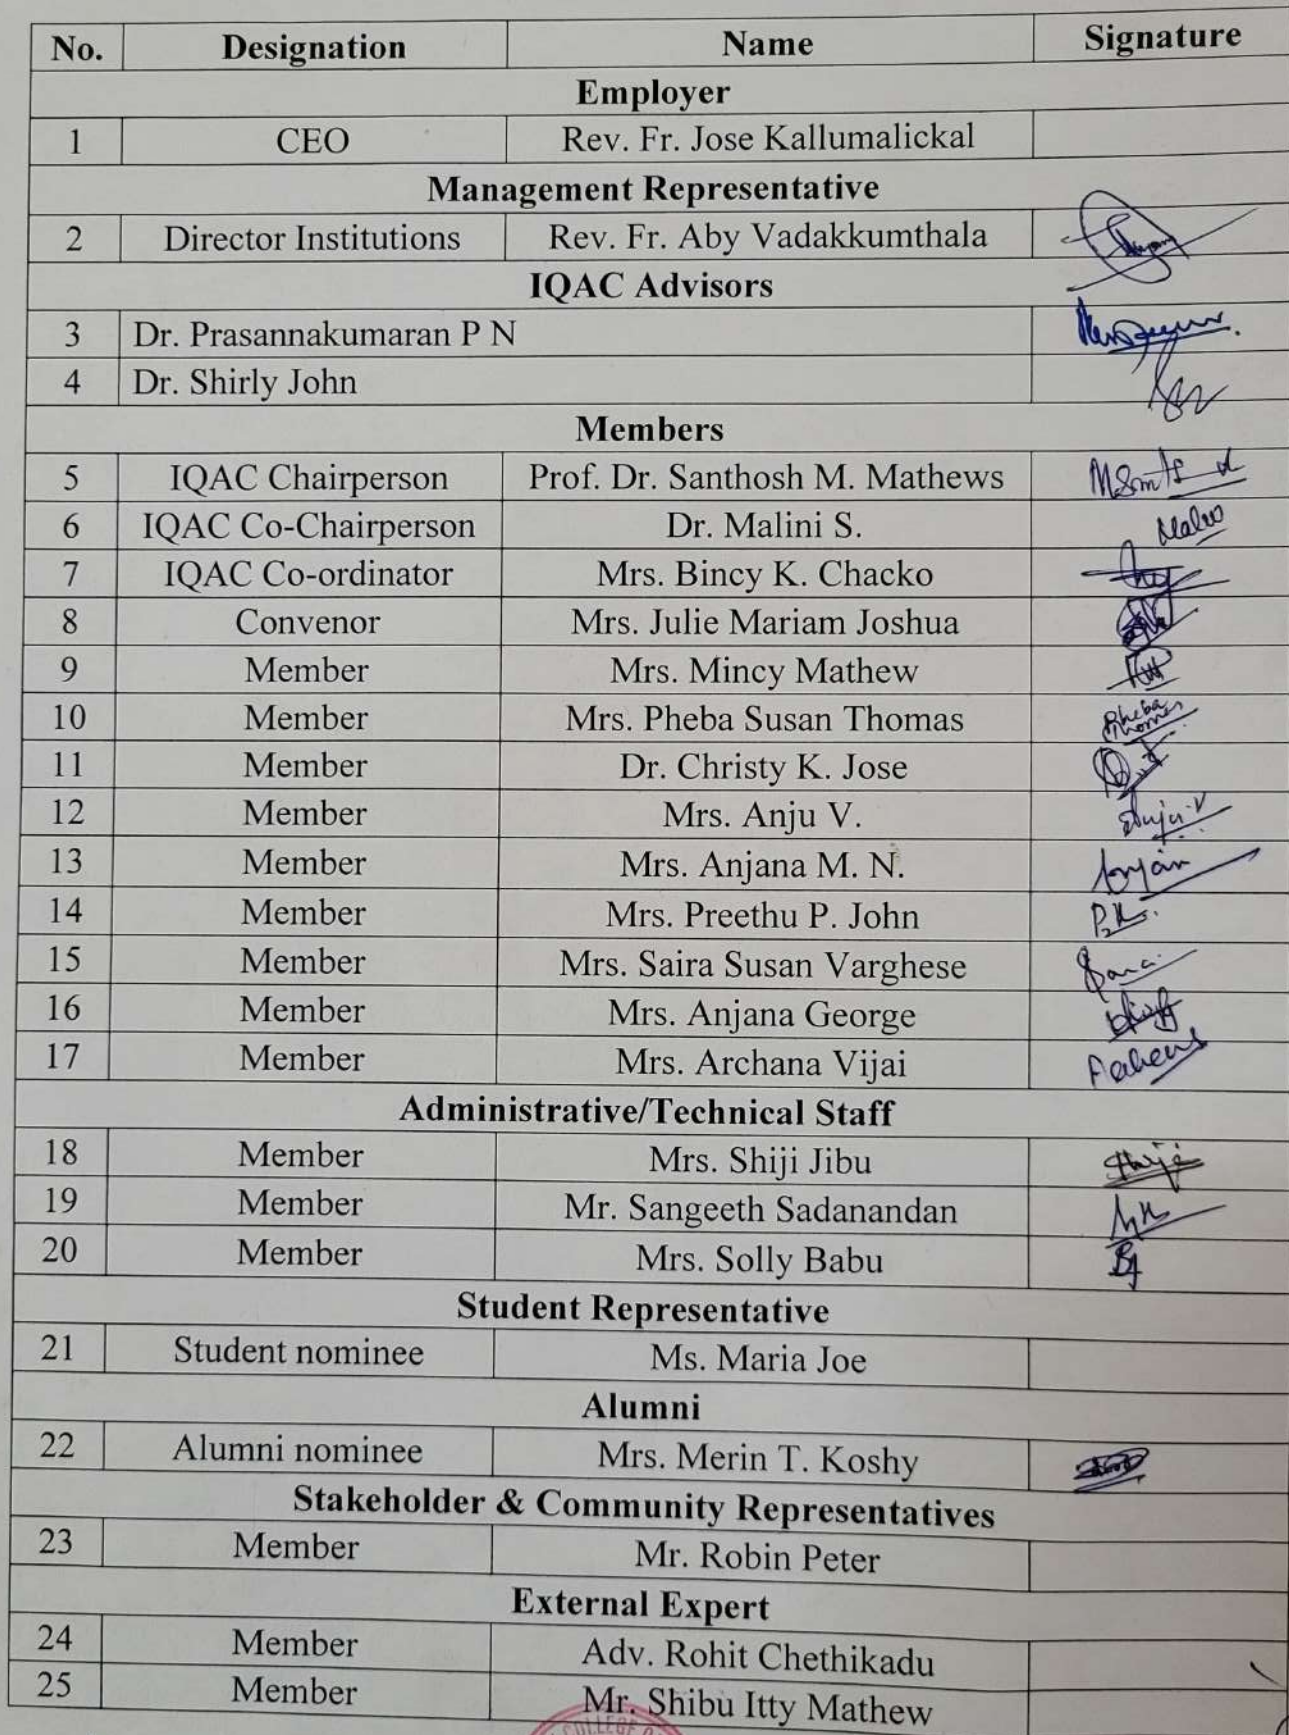 No. Designation Name Signature
Employer
1 CEO Rev. Fr. Jose Kallumalickal
Management Representative
2 Director Institutions Rev. Fr. Aby Vadakkumthala
IQAC Advisors
3 Dr. Prasannakumaran P N
4 Dr. Shirly John
Members
5 IQAC Chairperson Prof. Dr. Santhosh M. Mathews
6 IQAC Co-Chairperson Dr. Malini S.
7 IQAC Co-ordinator Mrs. Bincy K. Chacko
8 Convenor Mrs. Julie Mariam Joshua
9 Member Mrs. Mincy Mathew
10 Member Mrs. Pheba Susan Thomas Pheba Thomas
11 Member Dr. Christy K. Jose
12 Member Mrs. Anju V. Anju V
13 Member Mrs. Anjana M. N.
14 Member Mrs. Preethu P. John
15 Member Mrs. Saira Susan Varghese
16 Member Mrs. Anjana George
17 Member Mrs. Archana Vijai
Administrative/Technical Staff
18 Member Mrs. Shiji Jibu Shiji
19 Member Mr. Sangeeth Sadanandan
20 Member Mrs. Solly Babu
Student Representative
21 Student nominee Ms. Maria Joe
Alumni
22 Alumni nominee Mrs. Merin T. Koshy
Stakeholder & Community Representatives
23 Member Mr. Robin Peter
External Expert
24 Member Adv. Rohit Chethikadu
25 Member Mr. Shibu Itty Mathew
COLLEGE